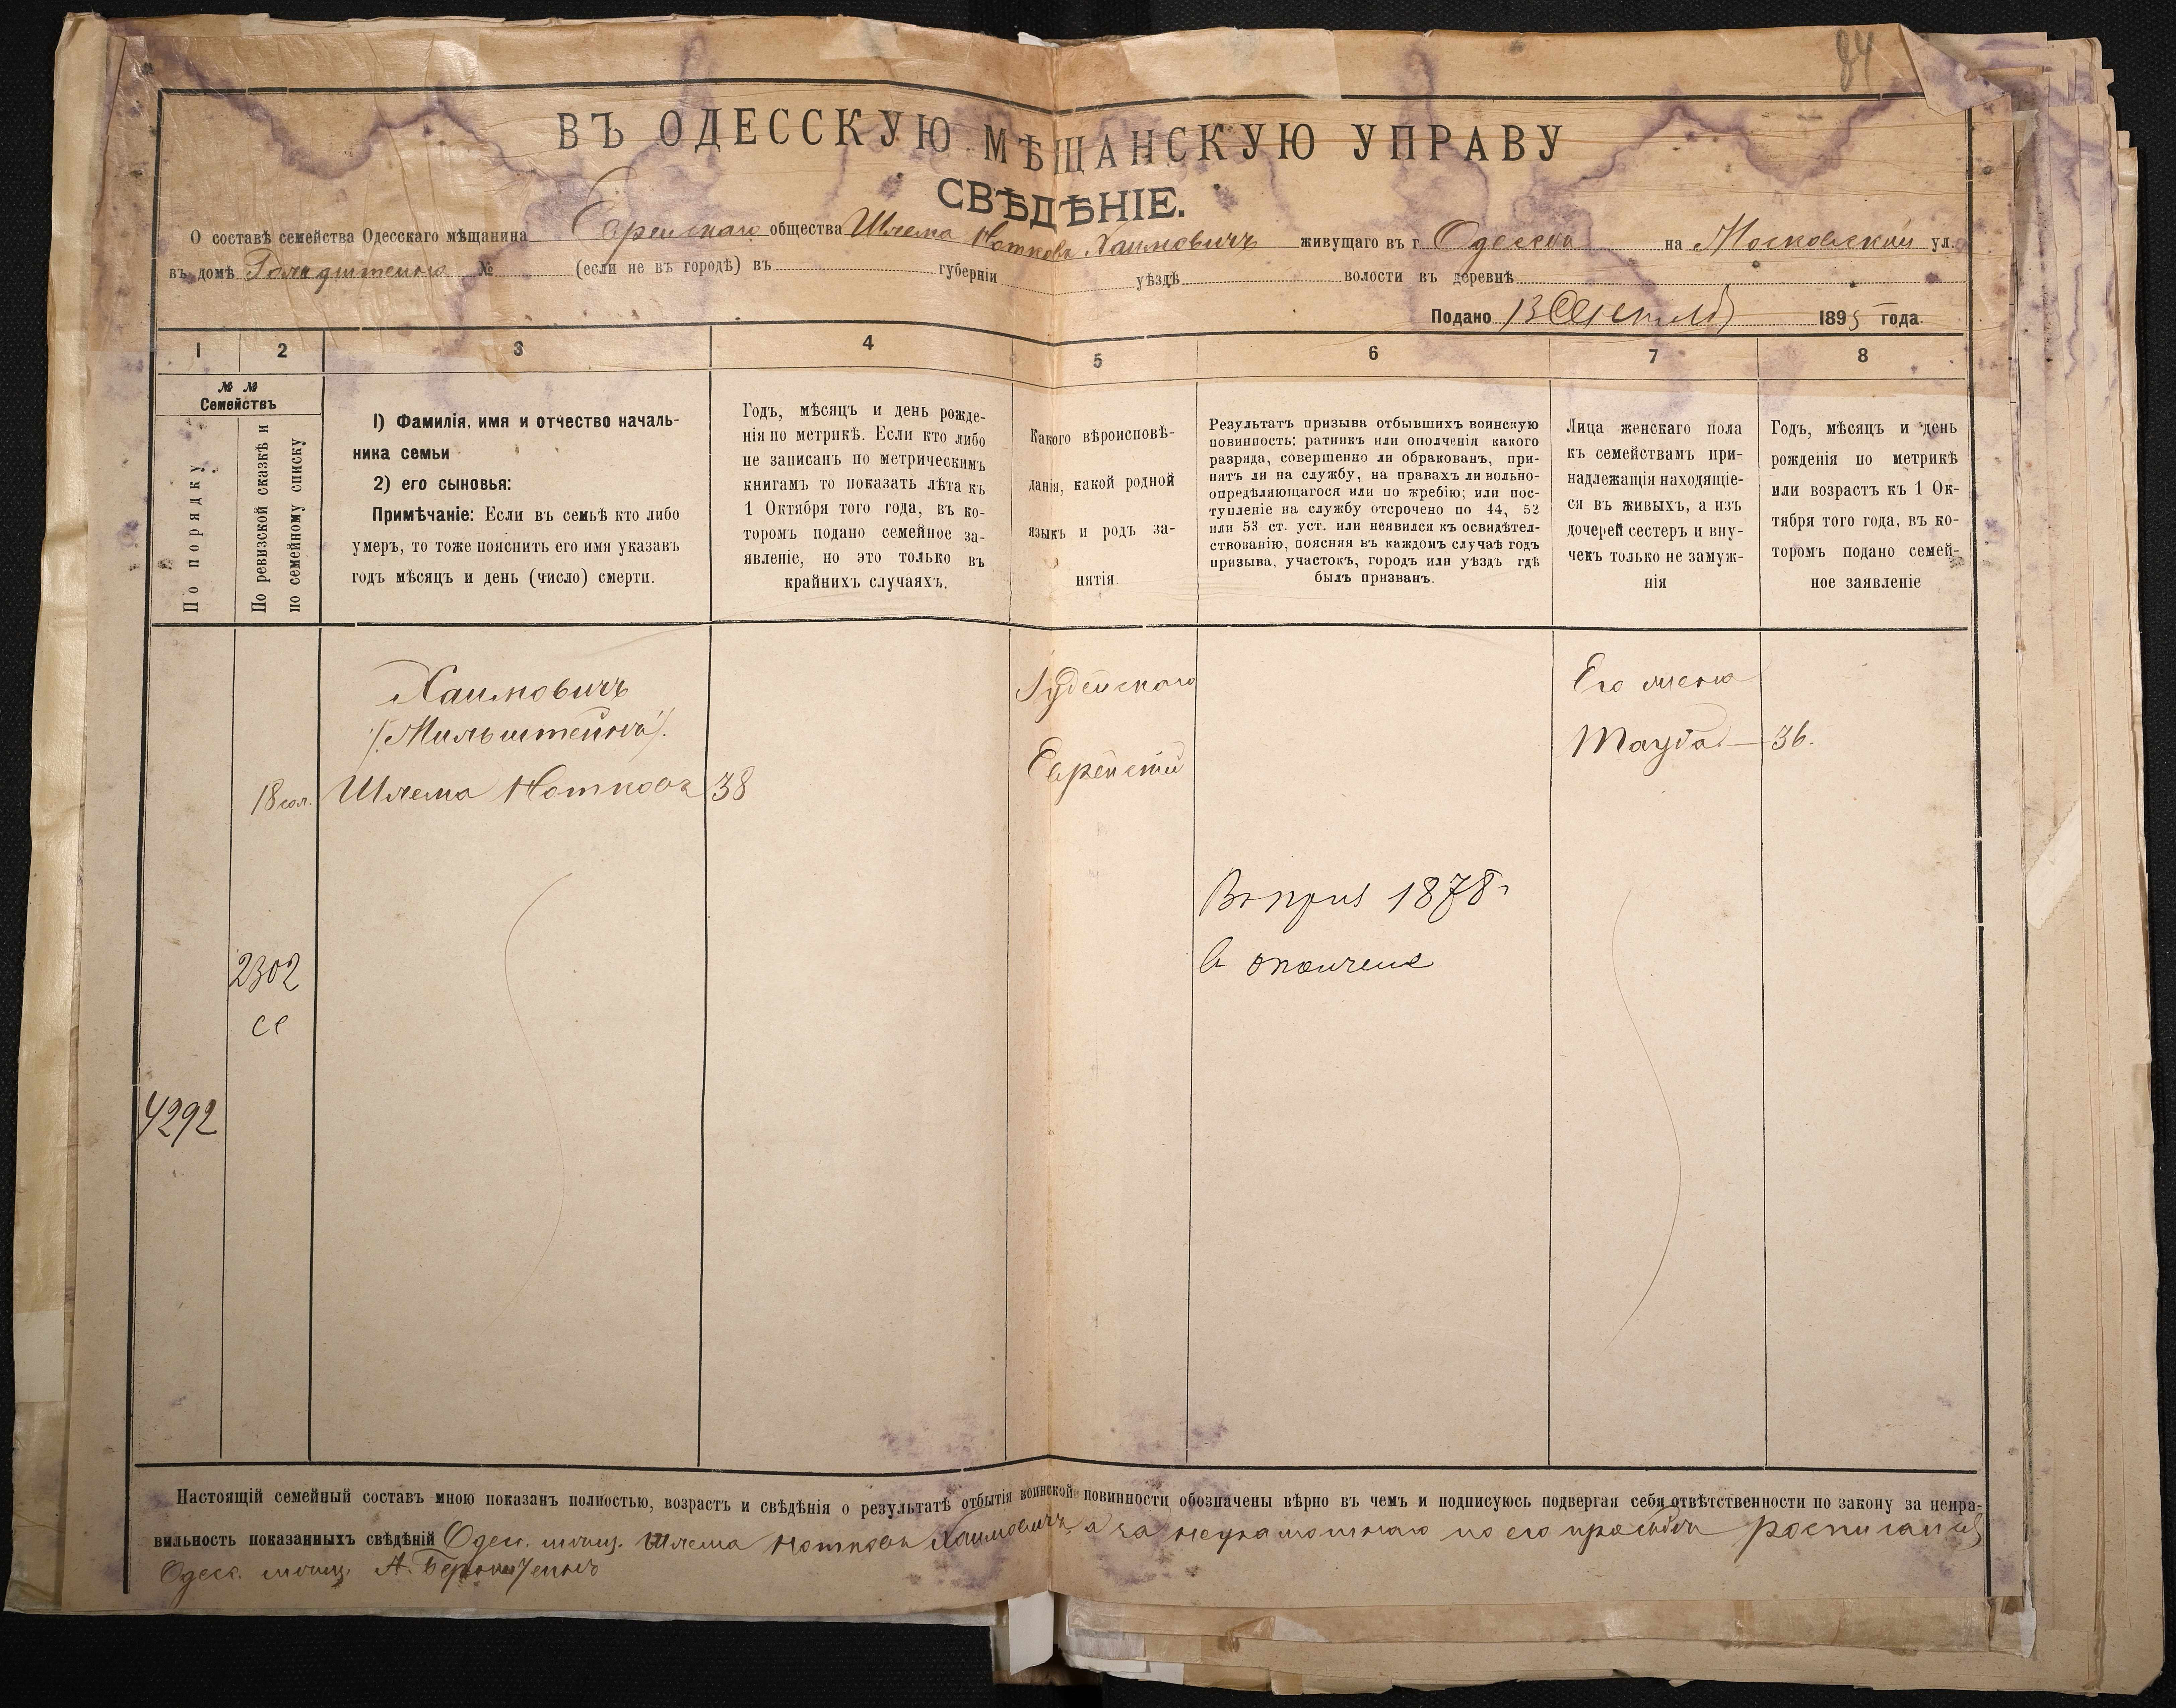 84
ВЪ ОДЕССКУЮ МѢЩАНСКУЮ УПРАВУ
СВѢДѢНІЕ.
О составѣ семейства Одесскаго мѣщанина Еврейскаго общества Шлема Нотковъ Хаимовичъ живущаго въ г Одессѣ на Московской ул.
въ домѣ № (если не въ городѣ) въ губерніи уѣздѣ волости въ деревнѣ
Подано 13 1895 года.
1 2 3 4 5 6 7 8
№ №
Семействъ
По порядку
По ревизской сказкѣ и
по семейному списку
1) Фамилія, имя и отчество началь-
ника семьи
2) его сыновья:
Примѣчаніе: Если въ семьѣ кто либо
умеръ, то тоже пояснить его имя указавъ
годъ мѣсяцъ и день (число) смерти.
Годъ, мѣсяцъ и день рожде-
нія по метрикѣ. Если кто либо
не записанъ по метрическимъ
книгамъ то показать лѣта къ
1 Октября того года, въ ко-
торомъ подано семейное за-
явленіе, но это только въ
крайнихъ случаяхъ.
Какого вѣроисповѣ-
данія, какой родной
языкъ и родъ за-
нятія.
Результатъ призыва отбывшихъ воинскую
повинность: ратникъ или ополченія какого
разряда, совершенно ли обракованъ, при-
нятъ ли на службу, на правахъ ли вольно-
опредѣляющагося или по жребію; или пос-
тупленіе на службу отсрочено по 44, 52
или 53 ст. уст. или неявился къ освидѣтел-
ствованію, поясняя въ каждомъ случаѣ годъ
призыва, участокъ, городъ или уѣздъ гдѣ
былъ призванъ.
Лица женскаго пола
къ семействамъ при-
надлежащія находящіе-
ся въ живыхъ, а изъ
дочерей сестеръ и вну-
чекъ только не замуж-
нія
Годъ, мѣсяцъ и день
рожденія по метрикѣ
или возрастъ къ 1 Ок-
тября того года, въ ко-
торомъ подано семей-
ное заявленіе
Хаимовичъ
(Мильштейнъ).
18 Шлема Нотковъ 38
Іудейскаго
Еврейскій
Его жена
Тауба — 36.
Въ 1878 г
в
2302
сс
4292
Настоящій семейный составъ мною показанъ полностью, возрастъ и свѣдѣнія о результатѣ отбытія воинской повинности обозначены вѣрно въ чемъ и подписуюсь подвергая себя отвѣтственности по закону за непра-
вильность показанныхъ свѣдѣній Одес. мѣщ. Шлема Нотковъ Хаимовичъ а за неграмотнаго по его просьбѣ росписался
Одес. мѣщ. А.